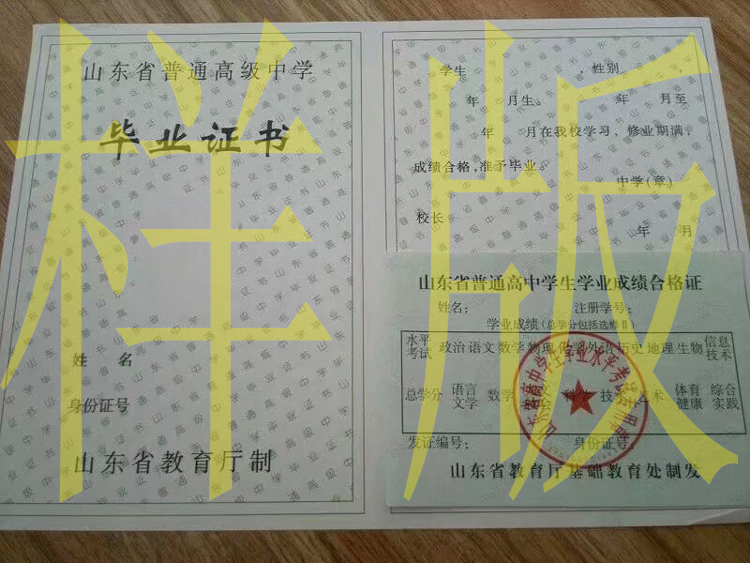 样版
山东省普通高级中学
毕业证书
姓 名
身份证号
山东省教育厅制
学生 ,性别 ,
年 月生。 年 月至
年 月在我校学习，修业期满，
成绩合格,准予毕业。
中学(章)
校长
年 月
山东省普通高中学生学业成绩合格证
姓名： 注册学号：
学业成绩(总学分包括选修Ⅱ)
水平考试 政治 语文 数学 物理 化学 外语 历史 地理 生物 信息技术
总学分 语言文学 数学 技 术 体育健康 综合实践
发证编号： 身份证号：
山东省教育厅基础教育处制发